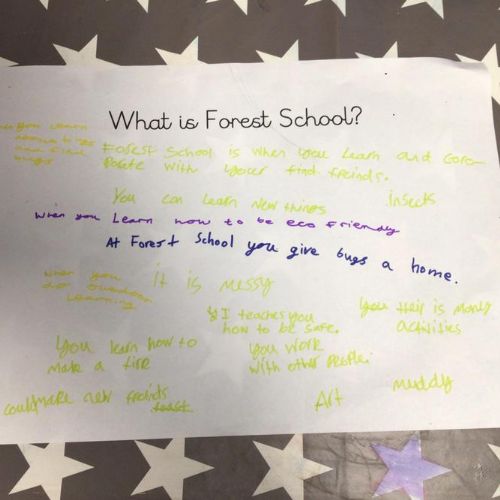 What is Forest School?
you Learn
and find
bugs
Forest School is when you Learn and Coro-
Porate with your find freinds.
You can Learn New things
insects
When you Learn how to be eco Friendly
At Forest School you give bugs a home.
When you
do outdoor
Learning
it is messy
I teaches you
how to be safe.
you their is many
activities
You learn how to
make a fire
you work
with other people.
muddy
could make new freinds
Art